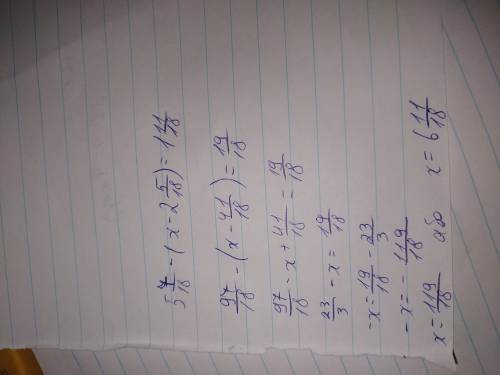 5 7/18 - (x - 2 5/18) = 1 11/18
97/18 - (x - 41/18) = 19/18
97/18 - x + 41/18 = 19/18
23/3 - x = 19/18
-x = 19/18 - 23/3
-x = - 119/18
x = 119/18 або x = 6 11/18